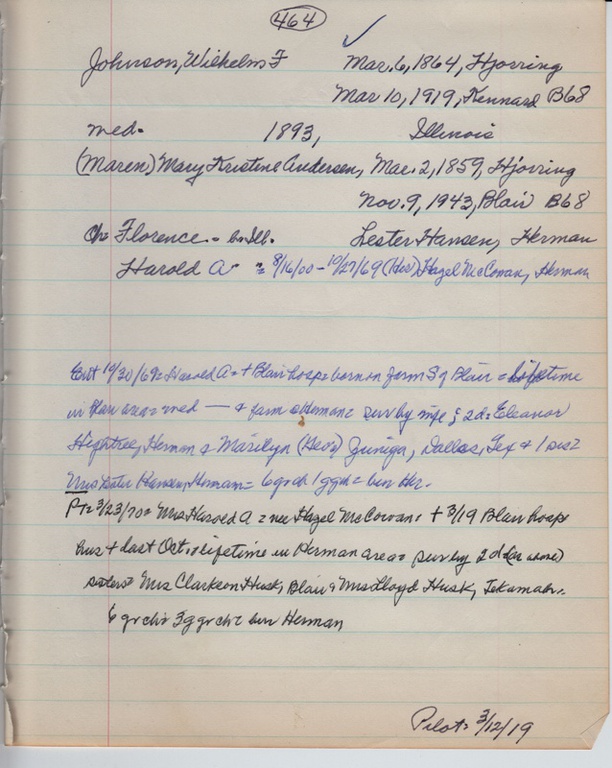 464
Johnson, Wilhelms F Mar. 6, 1864, Hjorring
Mar 10, 1919, Kennard B68
med. 1893, Illinois
(Maren) Mary Kristine Andersen, Mar. 2, 1859, Hjorring
Nov. 9, 1943, Blair B68
Ch Florence - b. Ill. Lester Hansen, Herman
Harold A - 8/16/00 - 10/27/69 (Her), Hazel McCowan, Herman
Ent 10/30/69 = Harold A = + Blair hosp = born on farm S of Blair = lifetime
in area = med — & farm Herman = surv by wife & 2 d = Eleanor
Hightree, Herman & Marilyn (Geo) Zuniga, Dallas, Tex + 1 sis =
Mrs Lester Hansen, Herman = 6 grch 1 ggch = bur Her.
PT = 3/23/70 = Mrs Harold A = nee Hazel McCowan = + 3/19 Blair hosp
hus + last Oct. = lifetime in Herman area = surv by 2 d (as above)
sisters = Mrs Clarkson Husk, Blair & Mrs Lloyd Husk, Tekamah =
6 grch = 3 ggrch = bur Herman
Pilot = 3/12/19